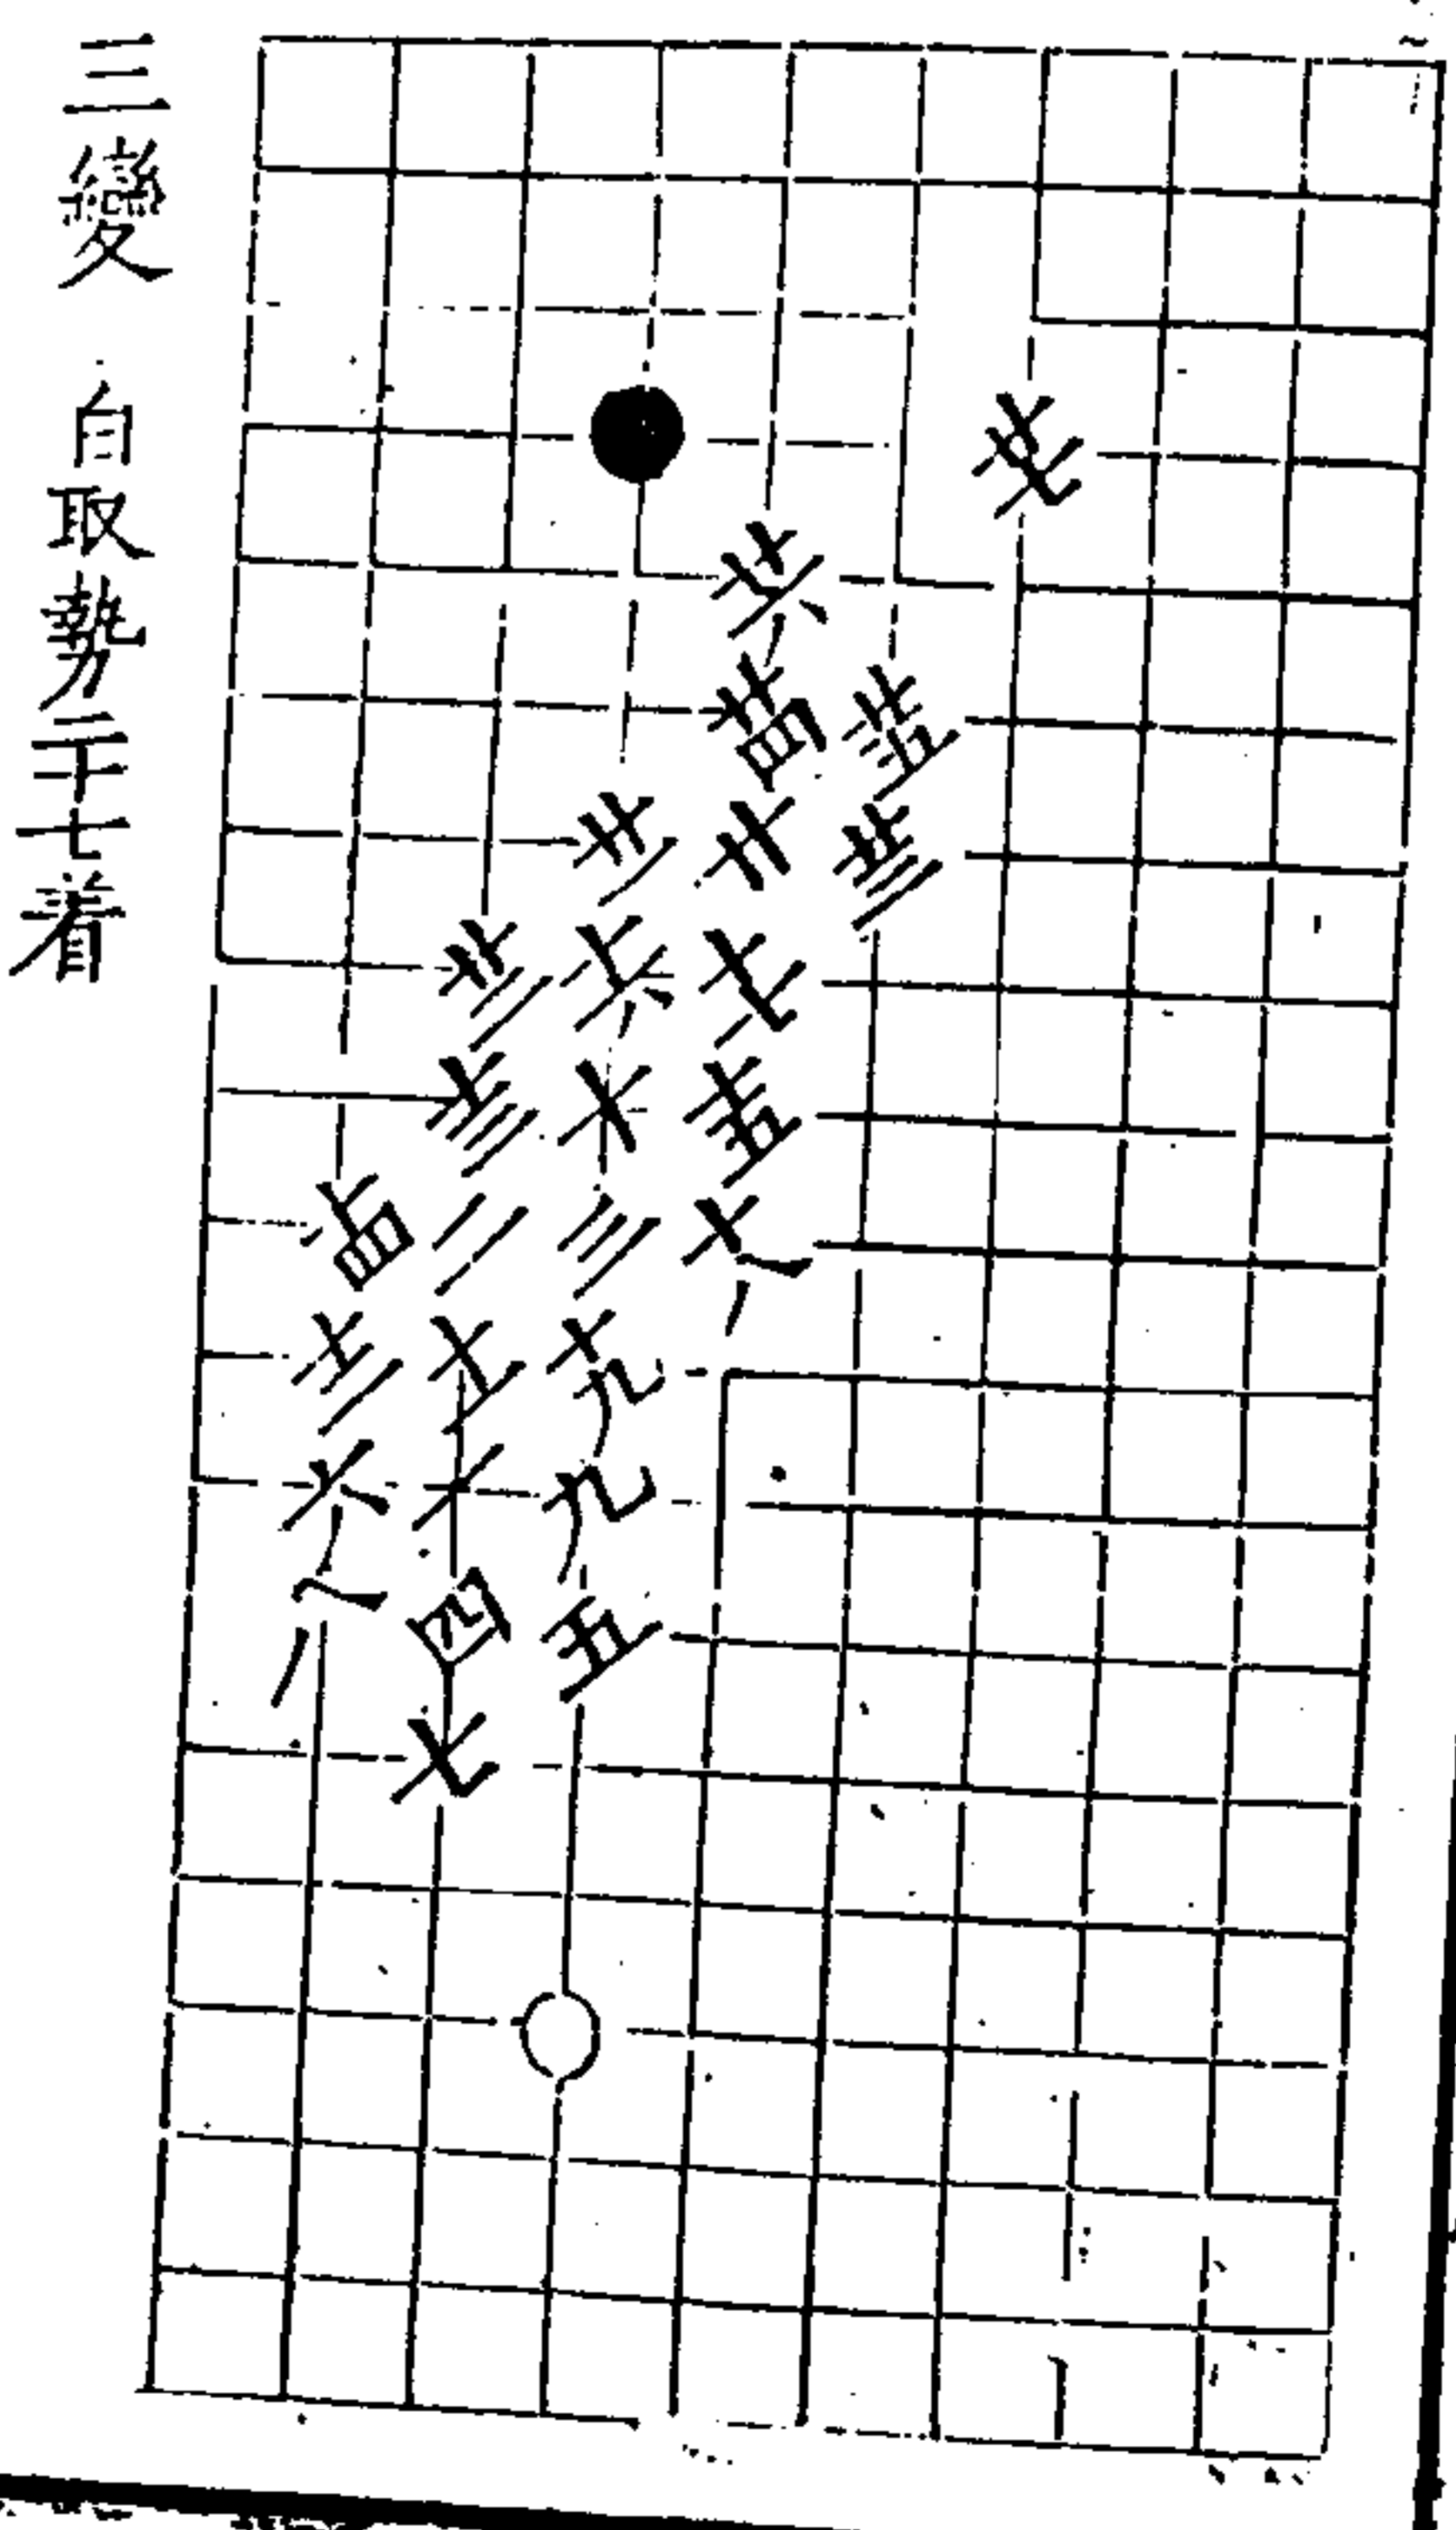 三變 自取勢二十七着
廿七
廿六
廿四 廿五
廿一 廿 廿三
廿二 十六 十七
十三 十 十五
十四 二 三 十八
十二 十一 十九
六 一 九
八 四 五
七